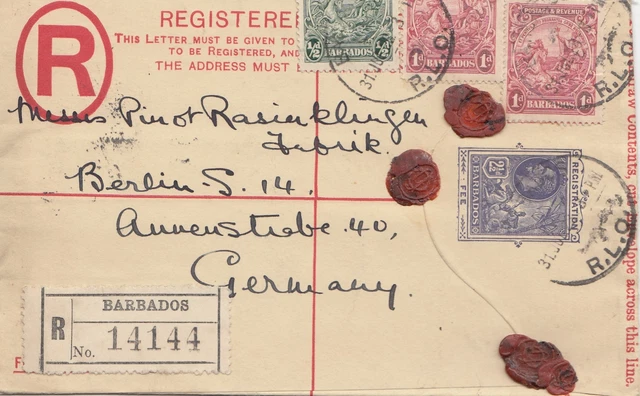 R
REGISTERE
THIS LETTER MUST BE GIVEN TO
TO BE REGISTERED, AND
THE ADDRESS MUST
½d ½d
BARBADOS
1d 1d
BARBADOS
POSTAGE & REVENUE
1d 1d
BARBADOS
R.L.O.
R.L.O.
Messrs Pinot Rasierklingen
Fabrik.
Berlin-S. 14.
Annenstraße 40,
Germany.
REGISTRATION
2½d
BARBADOS
FEE
R.L.O.
raw Contents, cut envelope across this line.
BARBADOS
R
No. 14144
F